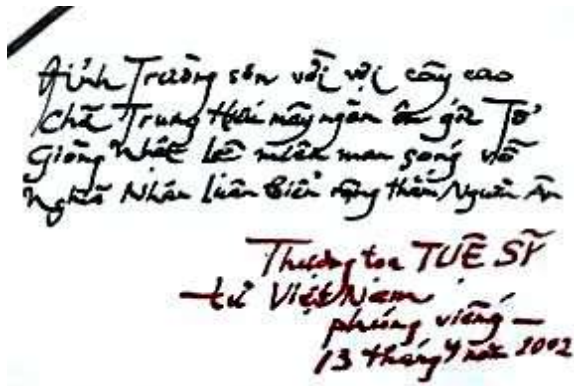 Đỉnh Trường sơn vời vợi cây cao
Trung Hải mây ngàn
Giòng Nhất Lệ miên man sóng vỗ
Nghĩa Nhân luân biển rộng thắm Nguồn Ân
Thượng tọa TUỆ SỸ
từ Việt Nam
phúng viếng —
13 tháng năm 2002